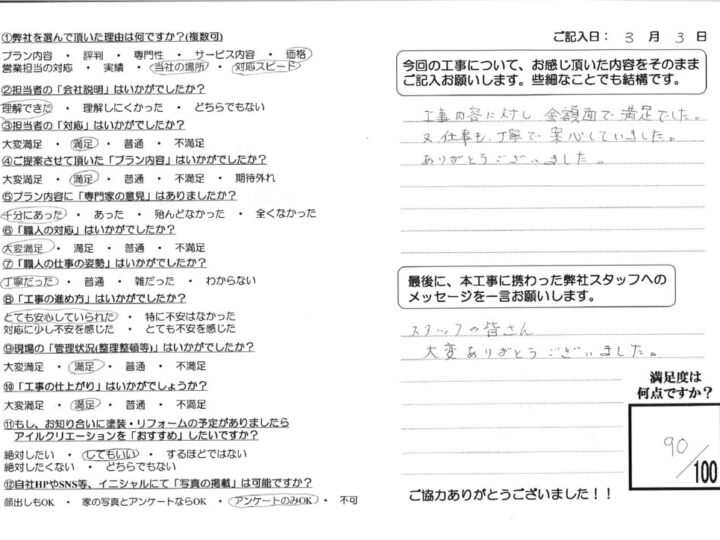 ①弊社を選んで頂いた理由は何ですか?(複数可)
プラン内容 ・ 評判 ・ 専門性 ・ サービス内容 ・ 価格
営業担当の対応 ・ 実績 ・ 当社の場所 ・ 対応スピード
②担当者の「会社説明」はいかがでしたか?
理解できた ・ 理解しにくかった ・ どちらでもない
③担当者の「対応」はいかがでしたか?
大変満足 ・ 満足 ・ 普通 ・ 不満足
④ご提案させて頂いた「プラン内容」はいかがでしたか?
大変満足 ・ 満足 ・ 普通 ・ 期待外れ
⑤プラン内容に「専門家の意見」はありましたか?
十分にあった ・ あった ・ 殆んどなかった ・ 全くなかった
⑥「職人の対応」はいかがでしたか?
大変満足 ・ 満足 ・ 普通 ・ 不満足
⑦「職人の仕事の姿勢」はいかがでしたか?
丁寧だった ・ 普通 ・ 雑だった ・ わからない
⑧「工事の進め方」はいかがでしたか?
とても安心していられた ・ 特に不安はなかった
対応に少し不安を感じた ・ とても不安を感じた
⑨現場の「管理状況(整理整頓等)」はいかがでしたか?
大変満足 ・ 満足 ・ 普通 ・ 不満足
⑩「工事の仕上がり」はいかがでしょうか?
大変満足 ・ 満足 ・ 普通 ・ 不満足
⑪もし、お知り合いに塗装・リフォームの予定がありましたら
アイルクリエーションを「おすすめ」したいですか?
絶対したい ・ してもいい ・ するほどではない
絶対したくない ・ どちらでもない
⑫自社HPやSNS等、イニシャルにて「写真の掲載」は可能ですか?
顔出しもOK ・ 家の写真とアンケートならOK ・ アンケートのみOK ・ 不可
ご記入日: 3 月 3 日
今回の工事について、お感じ頂いた内容をそのまま
ご記入お願いします。些細なことでも結構です。
工事内容に対し 金額面で満足でした。
又仕事も丁寧で 安心していました。
ありがとうございました。
最後に、本工事に携わった弊社スタッフへの
メッセージを一言お願いします。
スタッフの皆さん
大変ありがとうございました。
満足度は
何点ですか?
90/100
ご協力ありがとうございました!!